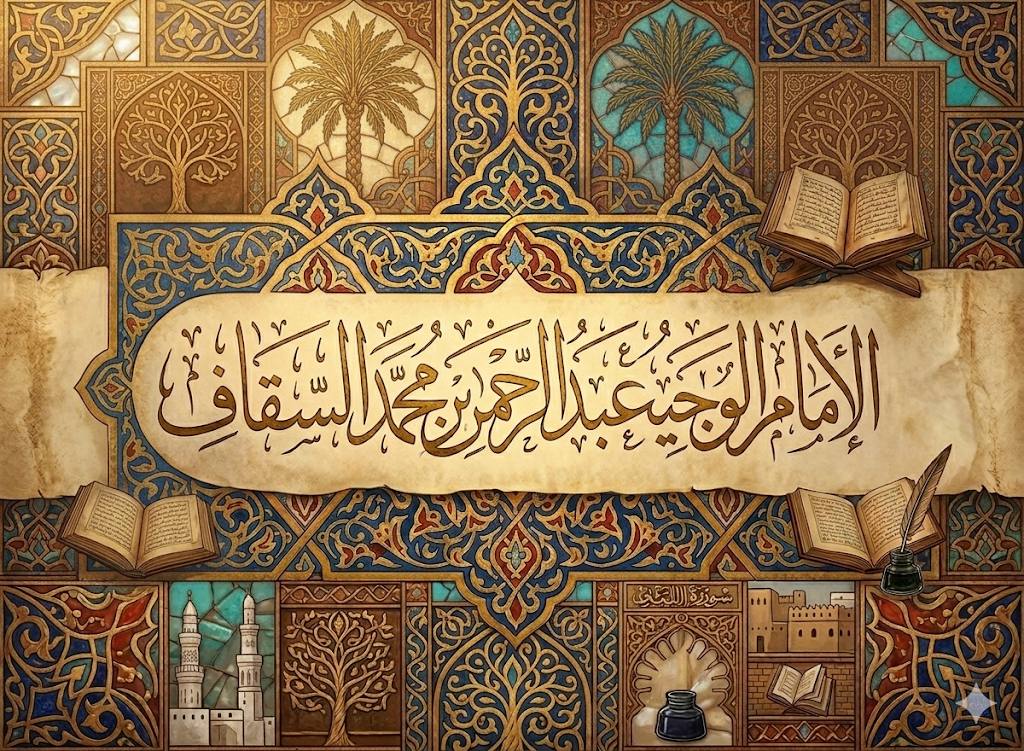 الإمام الوجيه عَبَدُ الرَّحمن بن مُحمَّد السَّقَافِ